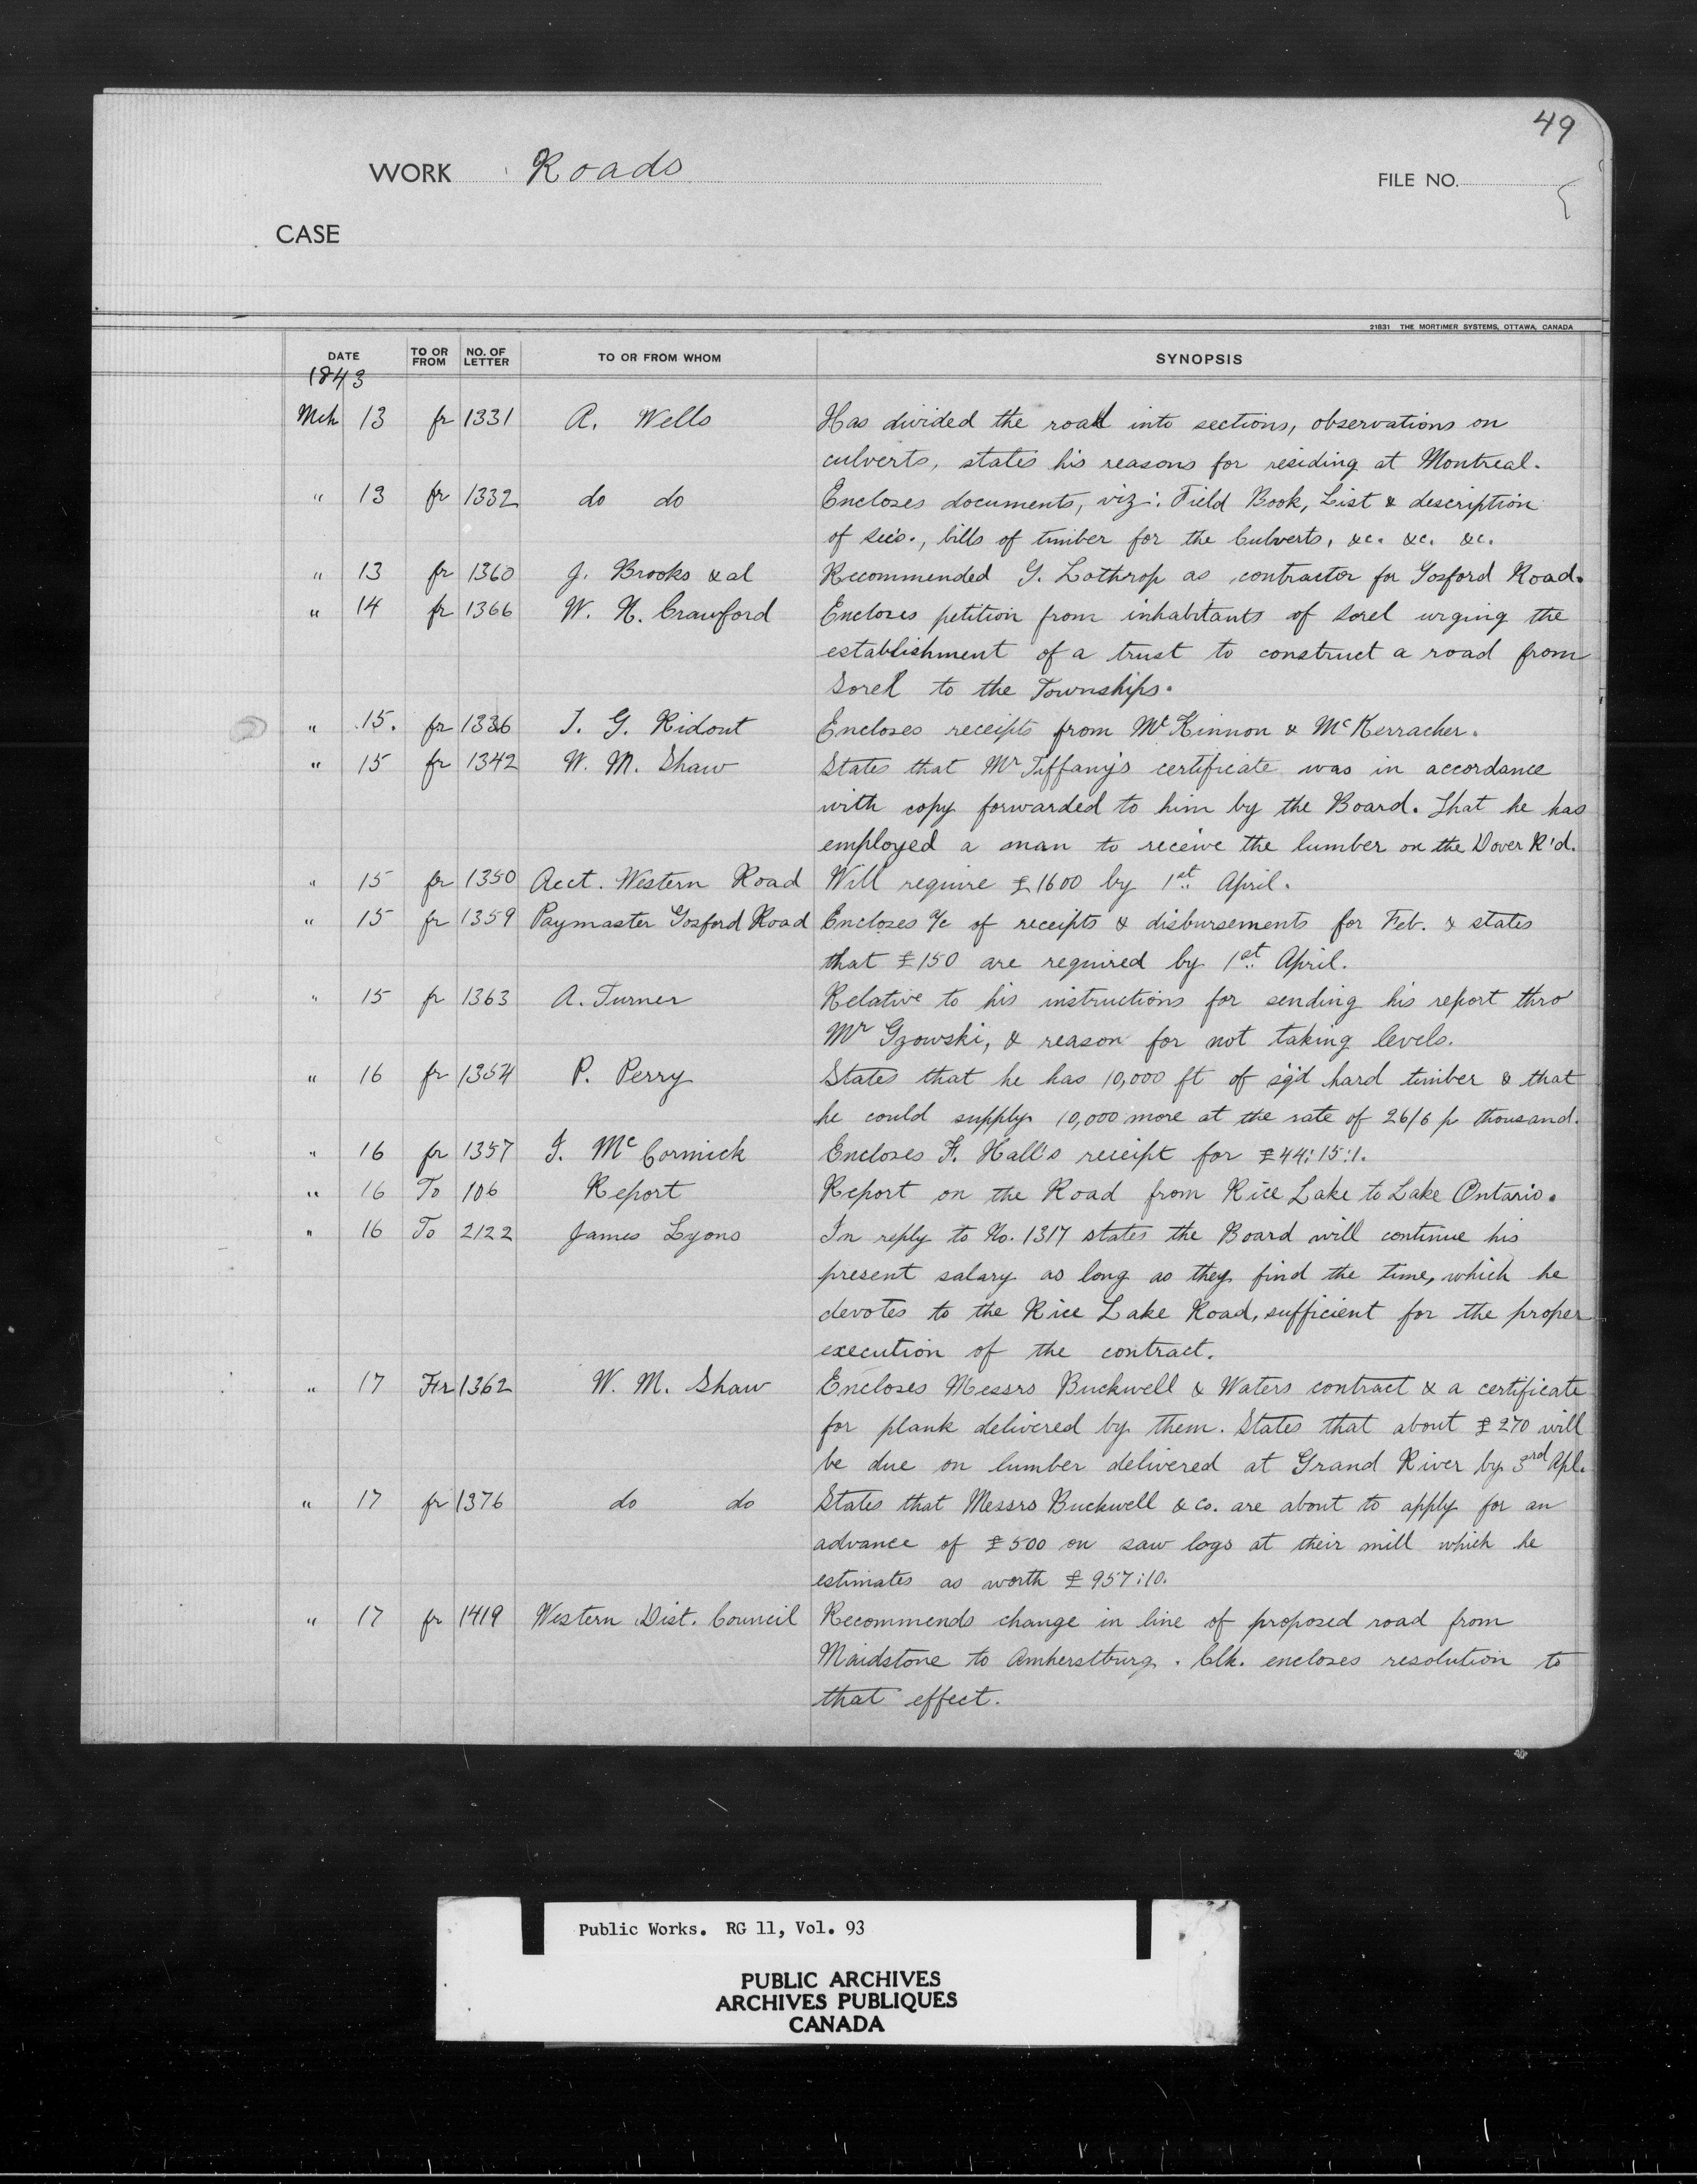 49
WORK Roads
FILE NO.
CASE
21831 THE MORTIMER SYSTEMS, OTTAWA, CANADA
DATE TO OR FROM NO. OF LETTER TO OR FROM WHOM SYNOPSIS
1843
Mch 13 fr 1331 A. Wells Has divided the road into sections, observations on
culverts, states his reasons for residing at Montreal.
" 13 fr 1332 do do Encloses documents, viz: Field Book, List & description
of secs., bills of timber for the Culverts, &c. &c. &c.
" 13 fr 1360 J. Brooks & al Recommended G. Lathrop as contractor for Gosford Road.
" 14 fr 1366 W. H. Crawford Encloses petition from inhabitants of Sorel urging the
establishment of a trust to construct a road from
Sorel to the Townships.
" 15. fr 1336 T. G. Ridout Encloses receipts from McKinnon & McKerracher.
" 15 fr 1342 W. M. Shaw States that Mr Tiffany's certificate was in accordance
with copy forwarded to him by the Board. That he has
employed a man to receive the lumber on the Dover R'd.
" 15 fr 1350 Acct. Western Road Will require £1600 by 1st April.
" 15 fr 1359 Paymaster Gosford Road Encloses a/c of receipts & disbursements for Feb. & states
that £150 are required by 1st April.
" 15 fr 1363 A. Turner Relative to his instructions for sending his report thro
Mr Gzowski, & reason for not taking levels.
" 16 fr 1354 P. Perry States that he has 10,000 ft of sq'd hard timber & that
he could supply 10,000 more at the rate of 26/6 p thousand.
" 16 fr 1357 J. McCormick Encloses F. Hall's receipt for £44:15:1.
" 16 To 106 Report Report on the Road from Rice Lake to Lake Ontario.
" 16 To 2122 James Lyons In reply to No. 1317 states the Board will continue his
present salary as long as they find the time, which he
devotes to the Rice Lake Road, sufficient for the proper
execution of the contract.
" 17 Fr 1362 W. M. Shaw Encloses Messrs Buckwell & Waters contract & a certificate
for plank delivered by them. States that about £270 will
be due on lumber delivered at Grand River by 3rd Apl.
" 17 fr 1376 do do States that Messrs Buckwell & Co. are about to apply for an
advance of £500 on saw logs at their mill which he
estimates as worth £957:10.
" 17 fr 1419 Western Dist. Council Recommends change in line of proposed road from
Maidstone to Amherstburg. Clk. encloses resolution to
that effect.
Public Works. RG 11, Vol. 93
PUBLIC ARCHIVES
ARCHIVES PUBLIQUES
CANADA